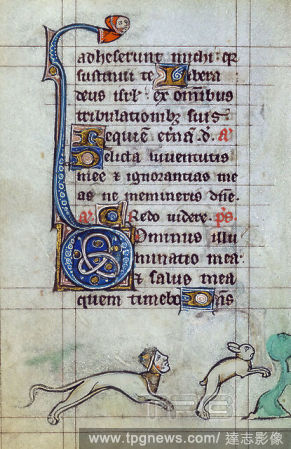 adheserunt michi: q̄
sustinui te Libera
deus isrł. ex omnibus
tribulationibz suis
Requiē etn̄ā. d. a͞r
Delicta iuuentutis
mee & ignorantias me
as ne memineris dn̄e.
a͞r Credo videre. p͞s
Dominus illu
minatio mea.
et salus mea
quem timebo Dn̄s
www.tpgnews.com / 達志影像